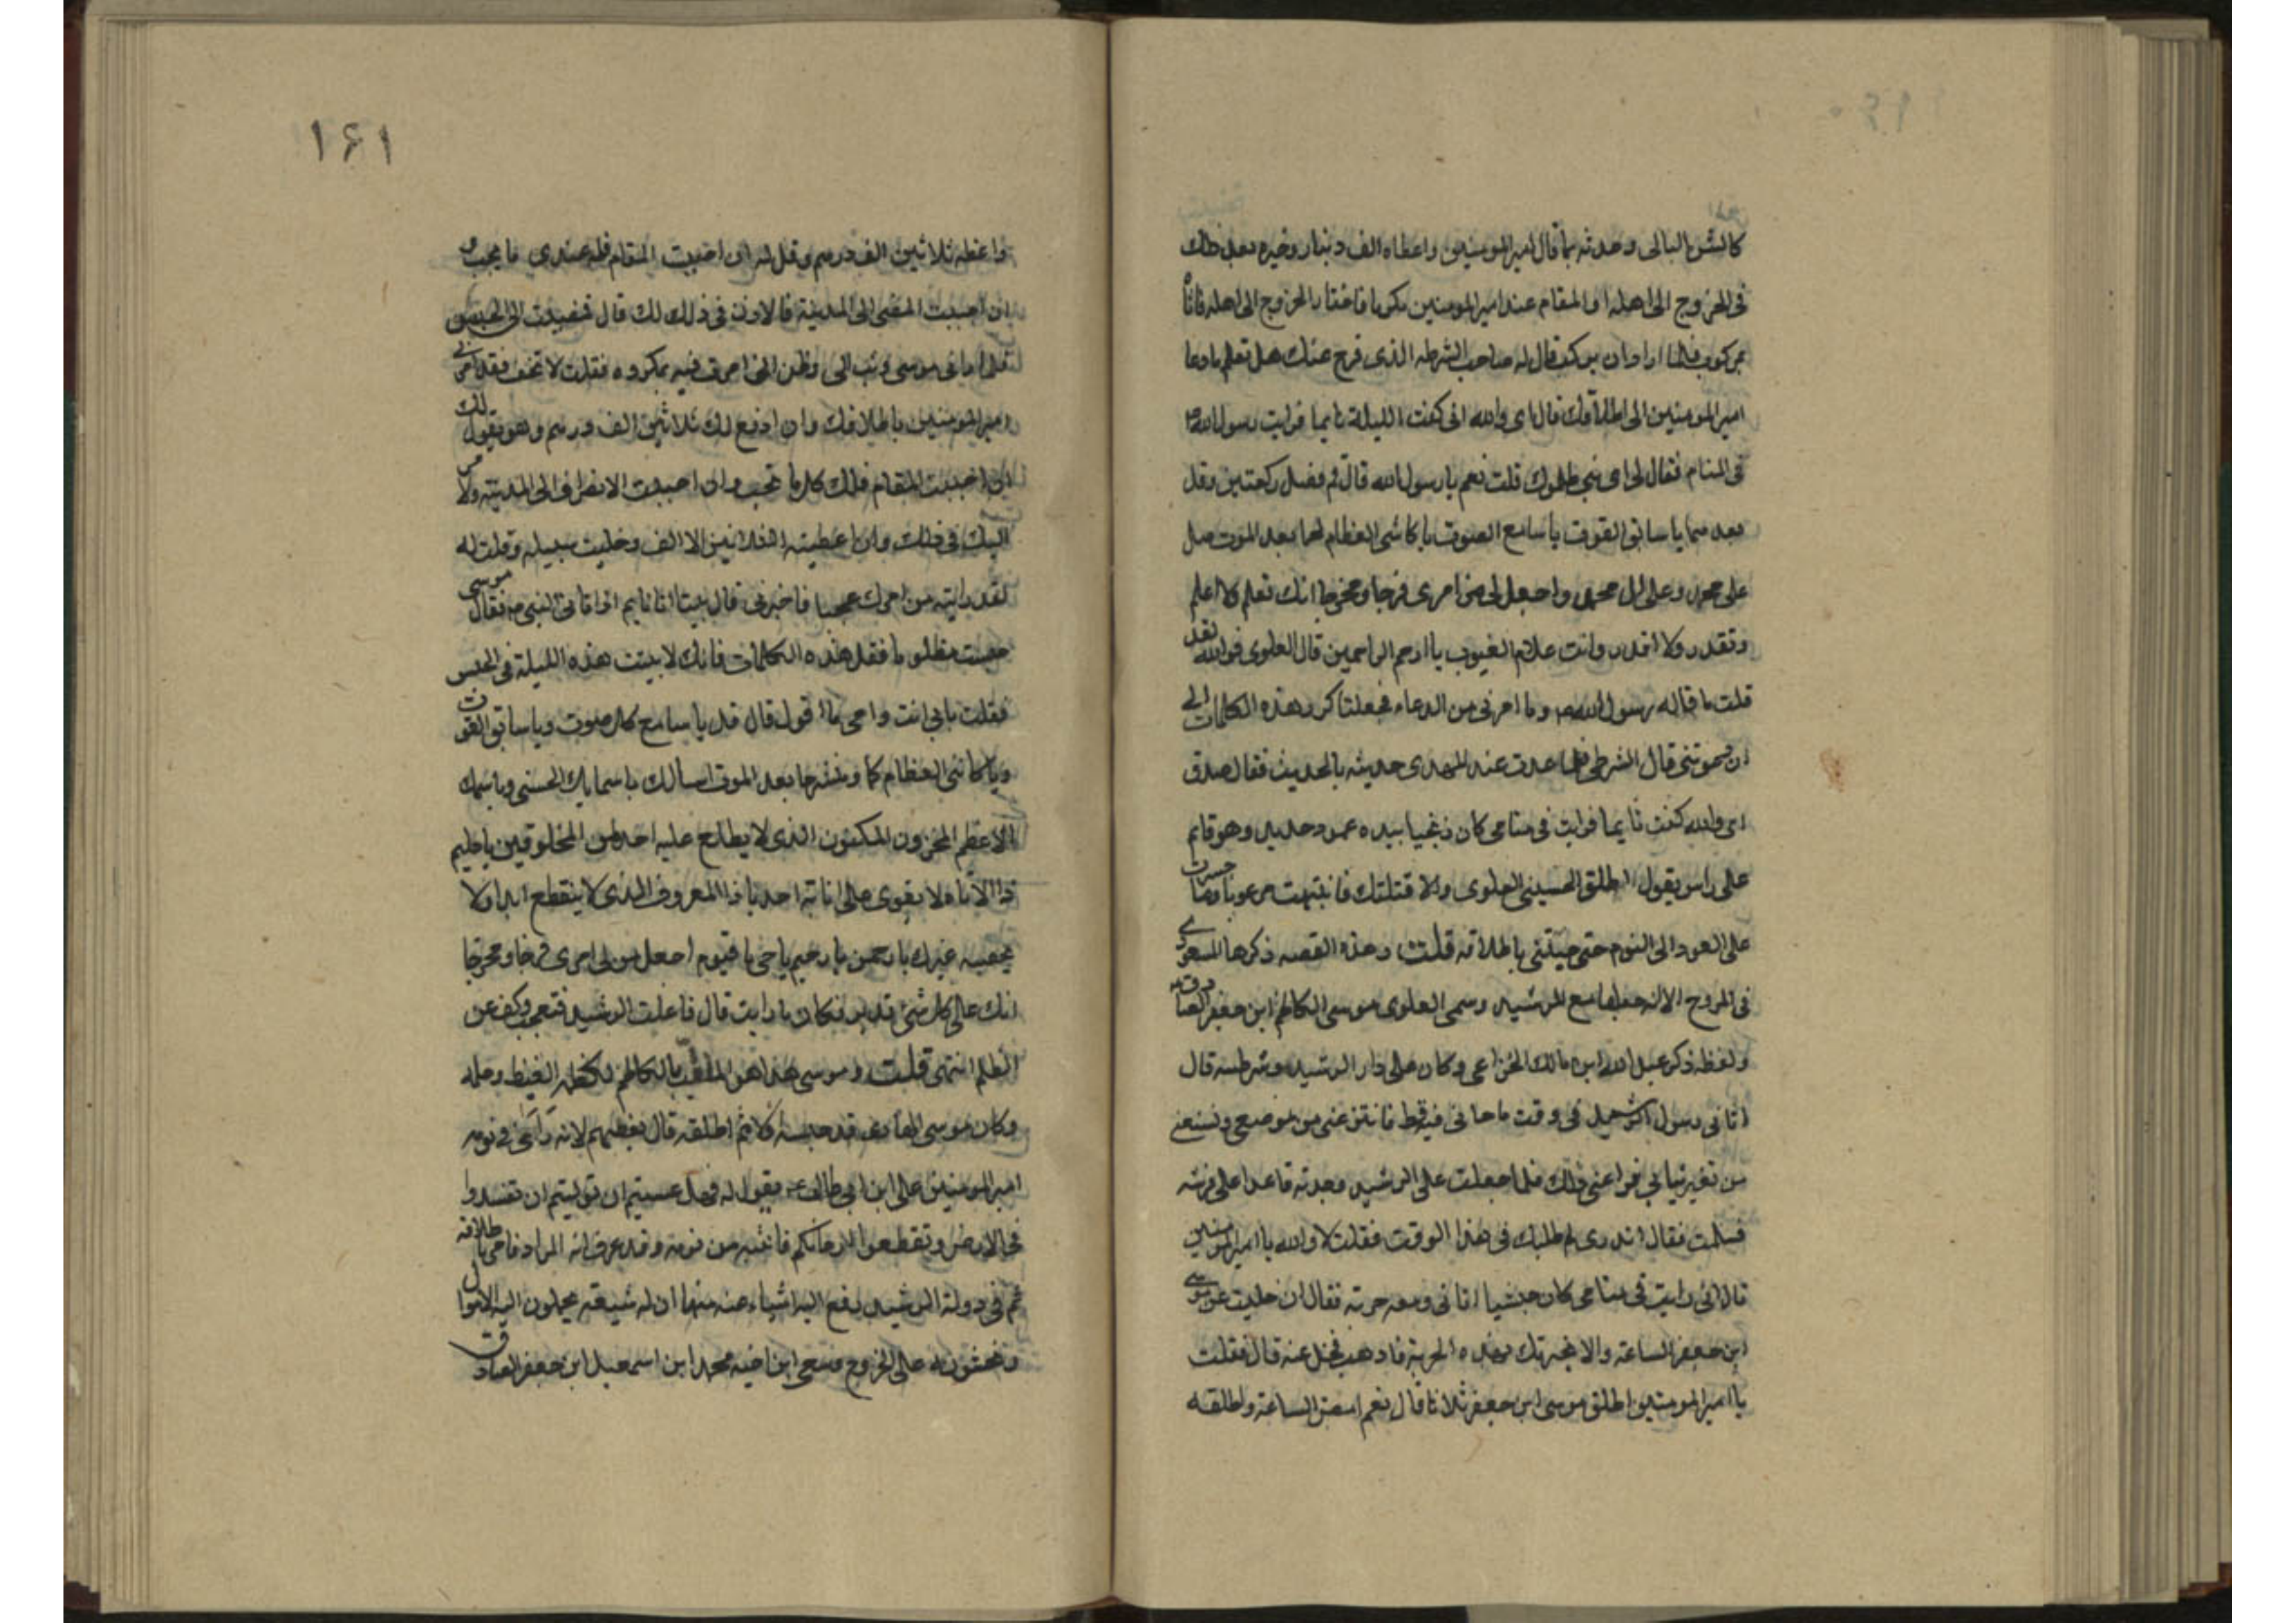 كالشن البالى وحدثه بما قال امير المومنين واعطاه الف دينار وخيره بعد ذلك
فى الخروج الى اهله او المقام عند امير المومنين مكرما فاختار الخروج الى اهله فاتاه
بمركوب فلما اراد ان يركب قال له صاحب الشرطه الذى فرج عنك هل تعلم ما دعا
امير المومنين الى اطلاقك قال اى والله انى كنت الليلة نايما فرايت رسول الله ص
فى المنام فقال لى اى بنى ظلموك قلت نعم يا رسول الله قال قم فصل ركعتين وقل
بعدهما يا سابق الفوت يا سامع الصوت يا كاشى العظام لحما بعد الموت صل
على محمد وعلى ال محمد واجعل لى من امرى فرجا ومخرجا انك تعلم ولا اعلم
وتقدر ولا اقدر وانت علام الغيوب يا ارحم الراحمين قال العلوى فوالله لقد
قلت ما قاله رسول الله ص وما امرنى من الدعاء فجعلت اكرر هذه الكلمات الى
ان دعوتنى قال الشرطى فلما عدت عند المهدى حديثه بالحديث فقال صدق
اى والله كنت نايما فرايت فى منامى كان زنجيا بيده عمود حديد وهو قايم
على راسى يقول اطلق الحسينى العلوى والا قتلتك فانتبهت مرعوبا وما جسرت
على العود الى النوم حتى جيتنى باطلاقه قلت وهذه القصه ذكرها المسعودى
فى المروج الا انه جعلها مع الرشيد وسمى العلوى موسى الكاظم ابن جعفر الصادق
ولفظه ذكر عبد الله ابن مالك الخزاعى وكان على دار الرشيد وشرطته قال
اتانى رسول الرشيد فى وقت ما جانى فيه قط فانتزعنى من موضعى ومنعنى
من تغير ثيابى فراعنى ذلك فلما جعلت على الرشيد وجدته قاعدا على فرشه
فسلمت فقال اتدرى لم طلبك فى هذا الوقت فقلت لا والله يا امير المومنين
قال انى رايت فى منامى كان حبشيا اتانى ومعه حربة فقال ان خليت عن موسى
ابن جعفر الساعة والا نحرتك بهذه الحربة فاذهب فخل عنه قال فقلت
يا امير المومنين اطلق موسى ابن جعفر ثلاثا قال نعم امض الساعة واطلقه
١٤١
واعطه ثلاثين الف درهم وقل له ان احببت المقام فله عندى ما يحب و
ان احببت المضى الى المدينة فالاذن فى ذلك لك قال فمضيت الى الحبس
فلما رانى موسى وثب الى وظن انى امرت فيه بمكروه فقلت لا تخف فقد امرنى
امير المومنين باطلاقك وان ادفع لك ثلاثين الف درهم وهو يقول لك
ان احببت المقام فلك كل ما تحب وان احببت الانصراف الى المدينة فالامر
اليك فى ذلك وان اعطيته الثلاثين الاالف وخليت سبيله وقلت له
لقد رايت من امرك عجبا فاخبرنى قال بينا انا نايم اذ اتانى النبى ص فقال موسى
حبست مظلوما فقل هذه الكلمات فانك لا تبيت هذه الليلة فى الحبس
فقلت بابى انت وامى ما اقول قال قل يا سامع كل صوت ويا سابق الفوت
ويا كاشى العظام لحما ومنشرها بعد الموت اسالك باسمايك الحسنى وباسمك
الاعظم المخزون المكنون الذى لا يطلع عليه احد من المخلوقين يا حليم
ذا الاناه لا يقوى على اناته احد يا ذا المعروف الذى لا ينقطع ابدا ولا
يحصيه غيرك يا رحمن يا رحيم يا حى يا قيوم اجعل لى من امرى فرجا ومخرجا
انك على كل شى قدير فكان ما رايت قال فاعلمت الرشيد فتعجب وكف عن
الظلم انتهى قلت وموسى هذا هو الملقب بالكاظم لكظمه الغيظ وحلمه
وكان موسى الهادى قد حبسه اولا ثم اطلقه قال بعضهم لانه راى فى نومه
امير المومنين على ابن ابى طالب ع يقول له فهل عسيتم ان توليتم ان تفسدوا
فى الارض وتقطعوا ارحامكم فانتبه من نومه وقد عرف انه المراد فامر باطلاقه
ثم فى دولة الرشيد رفع اليه اشياء عنه منها ان له شيعة يحملون اليه الاموال
ويحثونه على الخروج وسعى ابن اخيه محمد ابن اسمعيل ابن جعفر الصادق